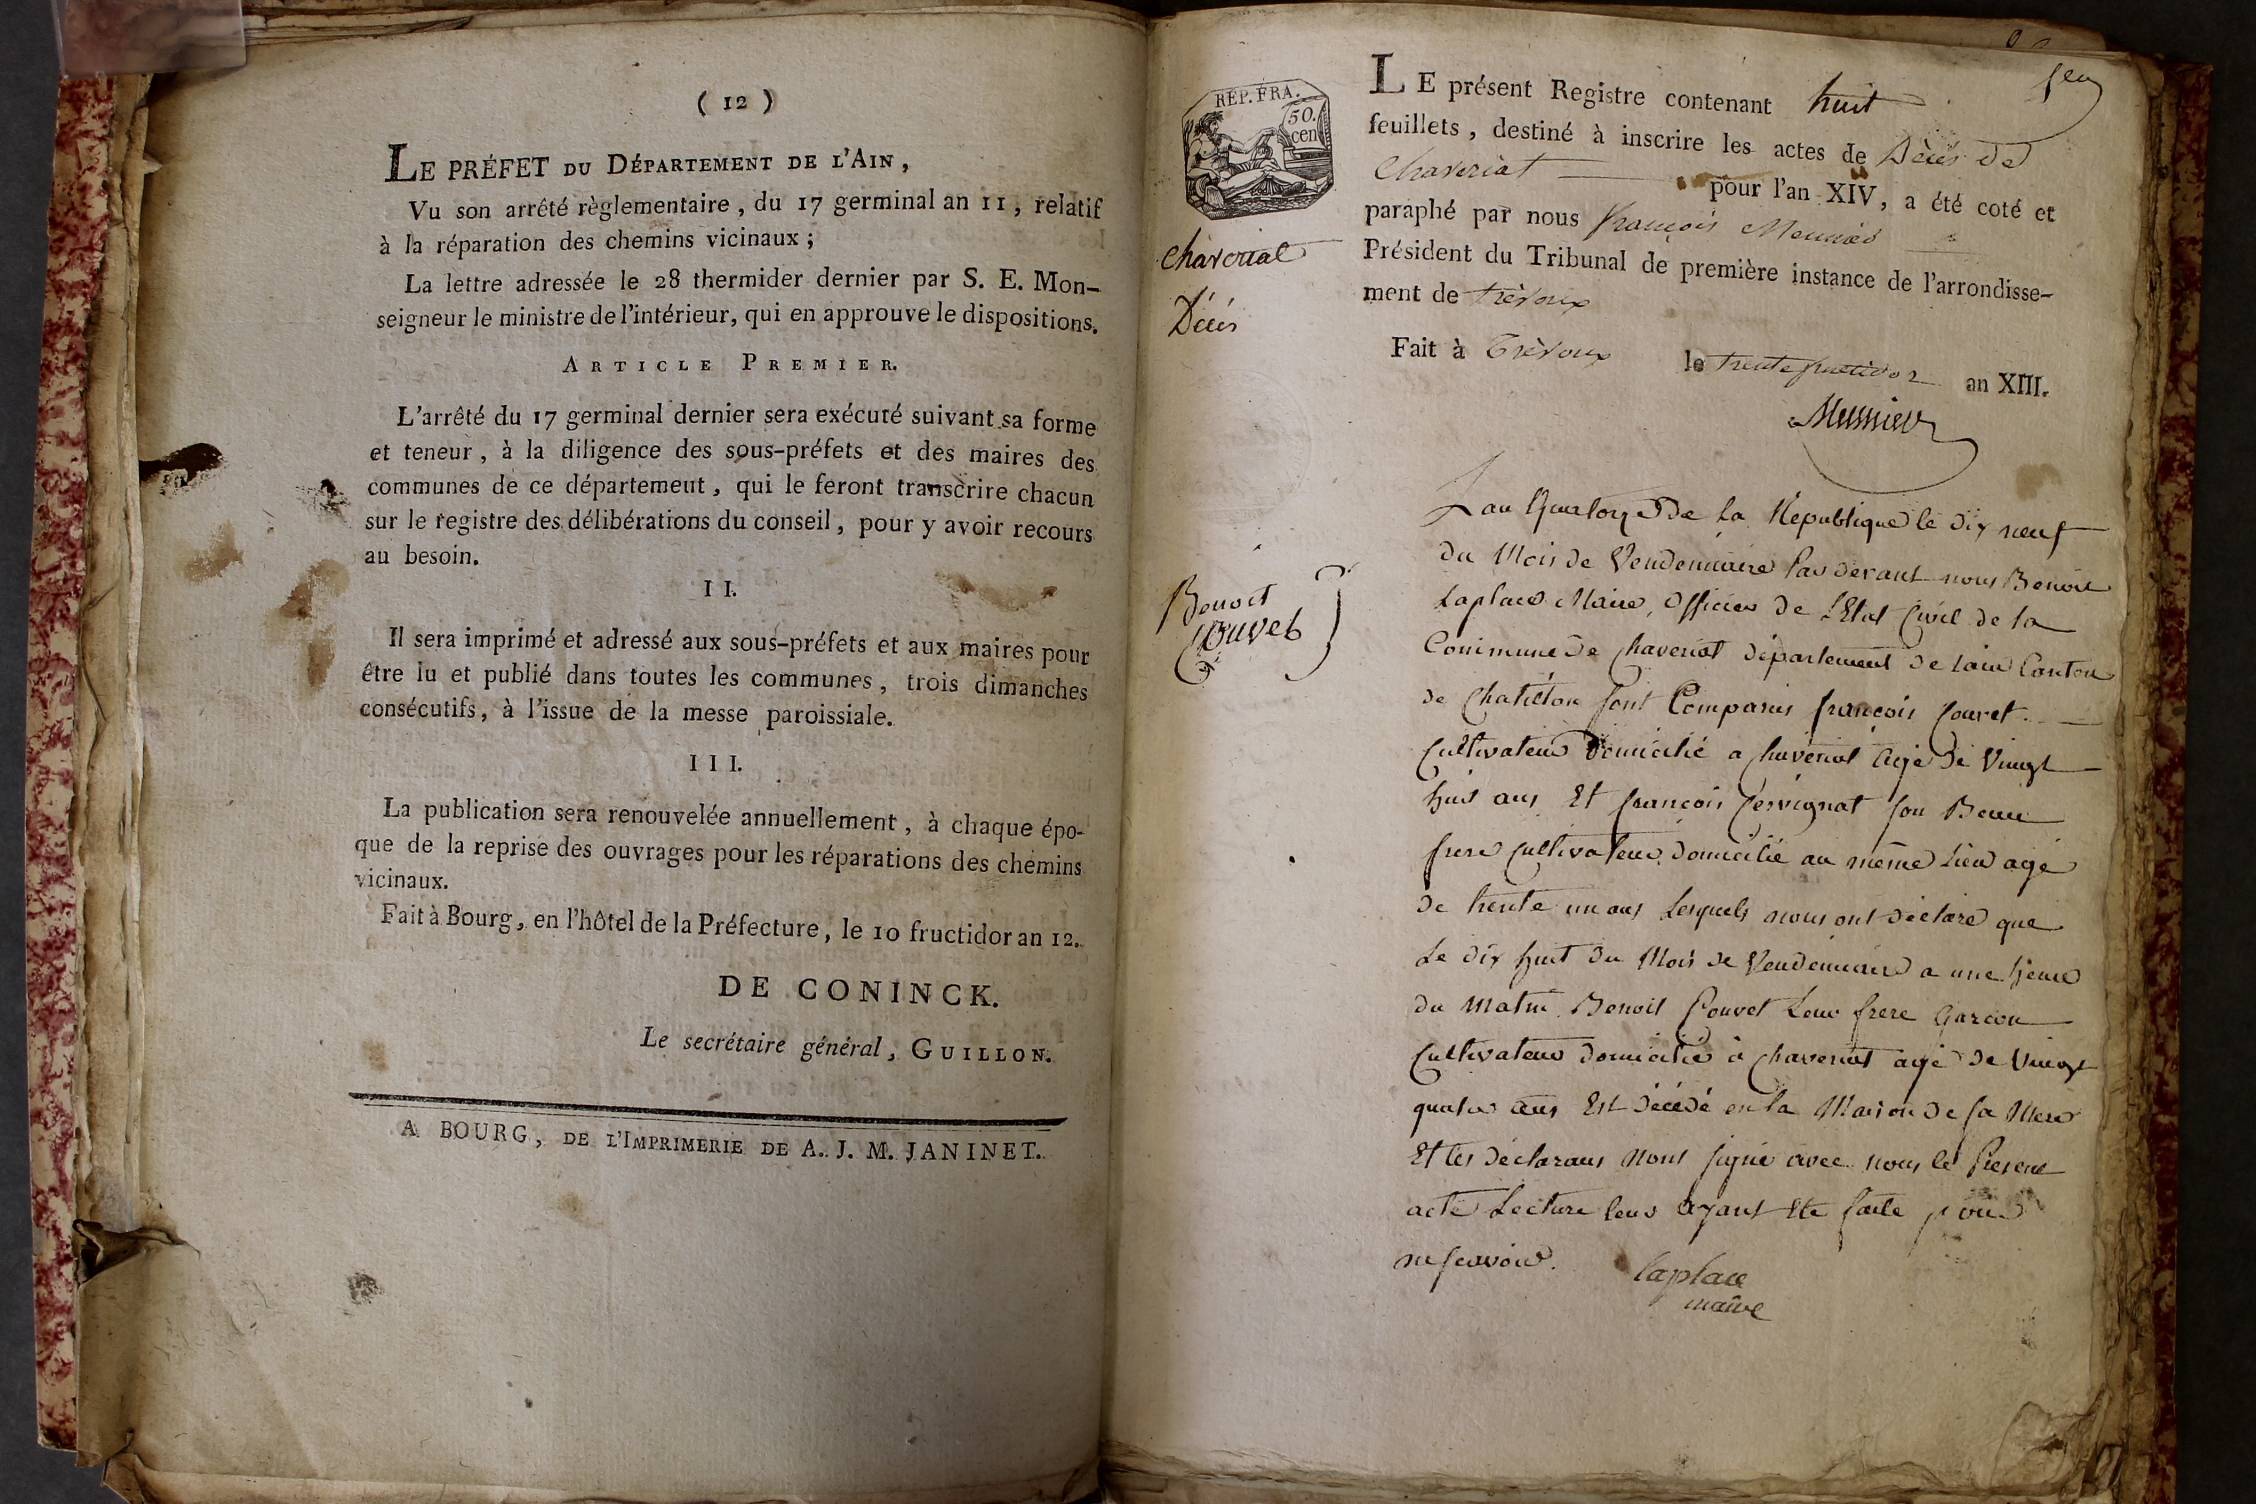 ( 12 )
LE PRÉFET DU DÉPARTEMENT DE L'AIN,
Vu son arrêté règlementaire, du 17 germinal an 11, relatif
à la réparation des chemins vicinaux;
La lettre adressée le 28 thermider dernier par S. E. Mon-
seigneur le ministre de l'intérieur, qui en approuve le dispositions.
ARTICLE PREMIER.
L'arrêté du 17 germinal dernier sera exécuté suivant sa forme
et teneur, à la diligence des sous-préfets et des maires des
communes de ce département, qui le feront transcrire chacun
sur le registre des délibérations du conseil, pour y avoir recours
au besoin.
II.
Il sera imprimé et adressé aux sous-préfets et aux maires pour
être lu et publié dans toutes les communes, trois dimanches
consécutifs, à l'issue de la messe paroissiale.
III.
La publication sera renouvelée annuellement, à chaque épo-
que de la reprise des ouvrages pour les réparations des chemins
vicinaux.
Fait à Bourg, en l'hôtel de la Préfecture, le 10 fructidor an 12.
DE CONINCK.
Le secrétaire général, GUILLON.
A BOURG, DE L'IMPRIMERIE DE A. J. M. JANINET.
REP. FRA.
50.
cen
Chaveriat
Décès
LE présent Registre contenant huit
feuillets, destiné à inscrire les actes de Décès de
Chaveriat pour l'an XIV, a été coté et
paraphé par nous françois Meunier
Président du Tribunal de première instance de l'arrondisse-
ment de trévoux
Fait à Trévoux le trente fructidor an XIII.
Munnier
Benoit
Couvet
L'an Quatorze De La République le dix neuf
du Mois de Vendemiaire Par devant nous Benoit
Laplace Maire, Officier de l'Etat Civil de la
Commune de Chaveriat département de lain Canton
de Chatillon sont Comparus françois Couvet
Cultivateur Domicilié a Chaveriat agé de Vingt
huit ans Et françois Pervignat son Beau
frere Cultivateur domicilié au même Lieu agé
de trente un ans Lesquels nous ont déclaré que
Le dix huit du Mois de Vendemiaire a une heure
du Matin Benoit Couvet Leur frere Garcon
Cultivateur domicilié à Chaveriat agé de Vingt
quatre ans Est décédé en la Maison de sa Mere
Et les déclarans n'ont signé avec nous le Present
acte Lecture leur ayant Ete faite pour
ne scavoir.
Laplace
maire